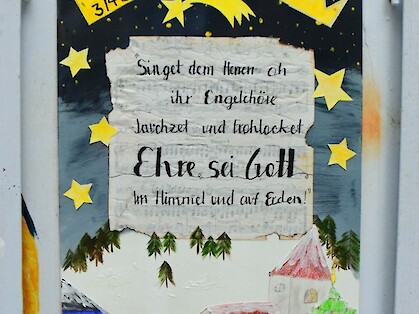 Singet dem Herren oh
ihr Engelchöre
Jauchzet und frohlocket
Ehre sei Gott
Im Himmel und auf Erden!"